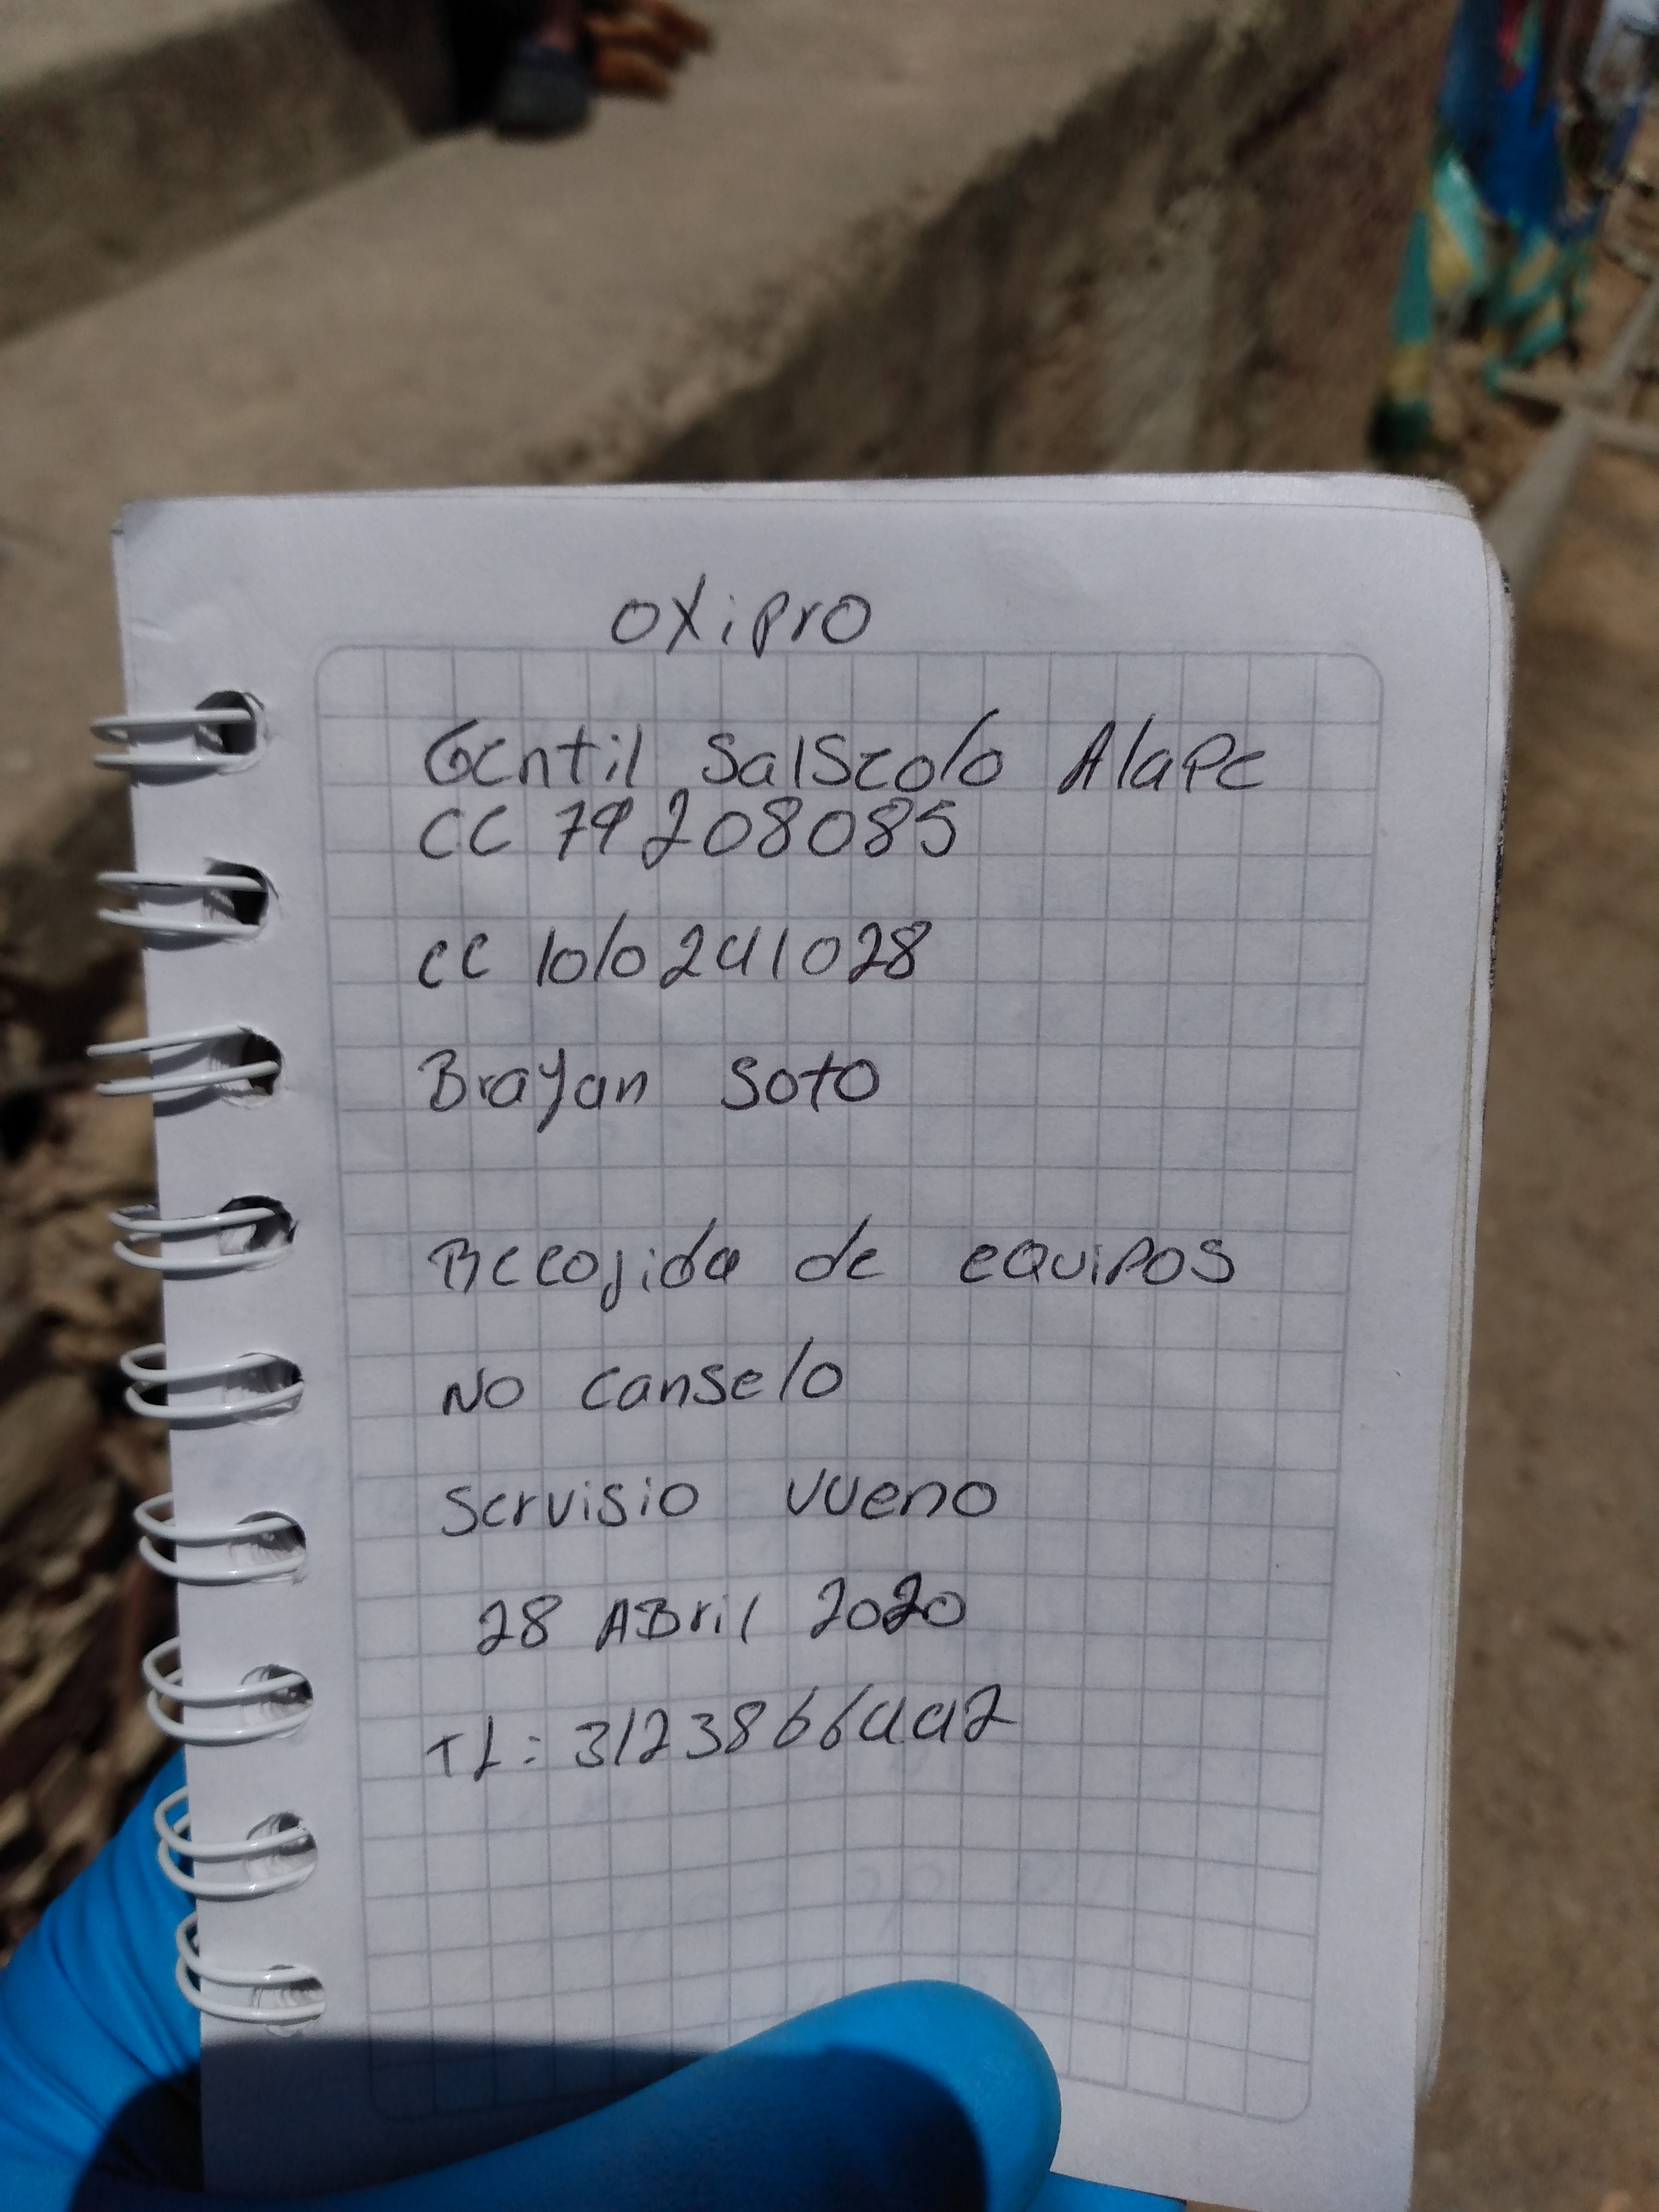 oxipro
Gentil Salscolo Alape
CC 79208085
CC 1010241028
Brayan Soto
Recojida de equipos
No canselo
Servisio vueno
28 ABril 2020
TL: 3123866442